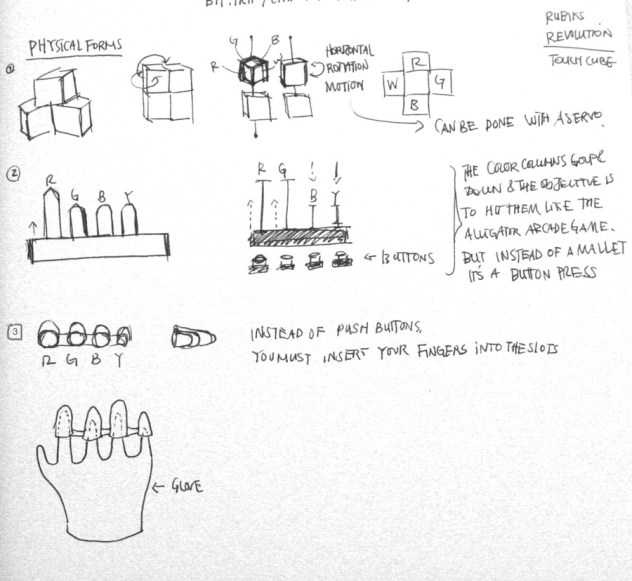 RUBIKS
REVOLUTION
TOUCH CUBE
PHYSICAL FORMS
1
G B
R W
HORIZONTAL
ROTATION
MOTION
R
W G
B
CAN BE DONE WITH A SERVO.
2
R G B Y
R G
B Y
← BUTTONS
THE COLOR COLUMNS GO UP &
DOWN & THE OBJECTIVE IS
TO HIT THEM LIKE THE
ALLIGATOR ARCADE GAME.
BUT INSTEAD OF A MALLET
IT'S A BUTTON PRESS
3
R G B Y
INSTEAD OF PUSH BUTTONS,
YOU MUST INSERT YOUR FINGERS INTO THE SLOTS
← GLOVE